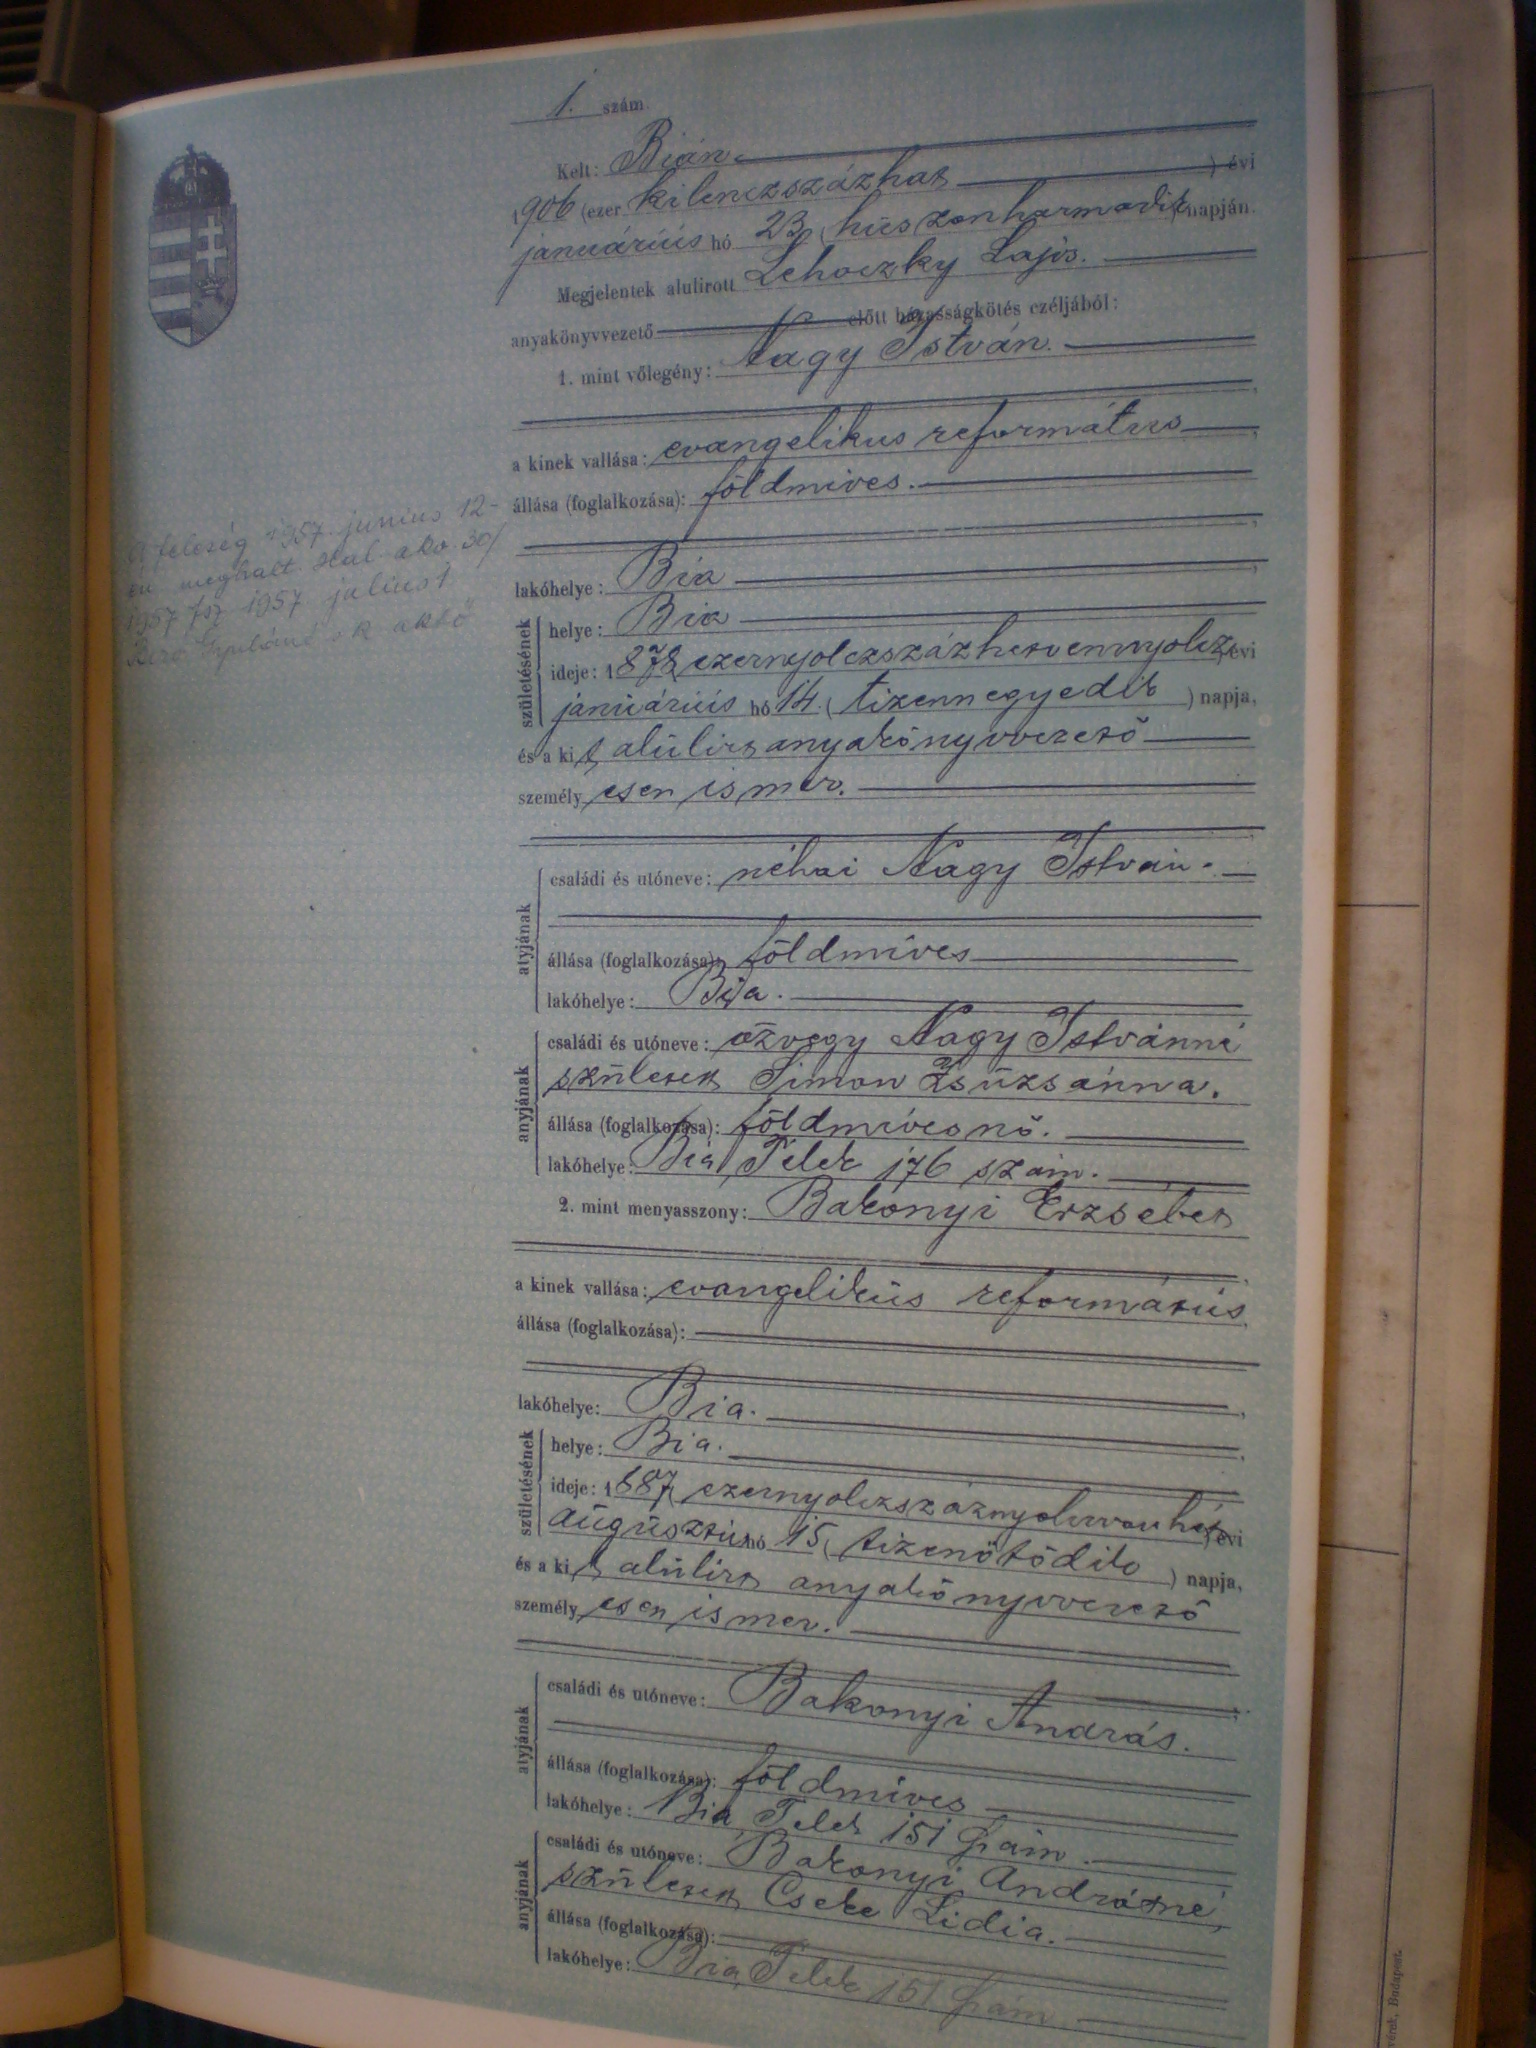 1. szám.
Kelt: Bián.
1906 (ezer kilenczszázhat ) évi
januáriús hó 23 (húszonharmadik) napján.
Megjelentek alulirott Lehoczky Lajos.
anyakönyvvezető előtt házasságkötés czéljából:
1. mint vőlegény: Nagy István.
a kinek vallása: evangelikus református
állása (foglalkozása): földmíves.
lakóhelye: Bia
születésének
helye: Bia
ideje: 1878 (ezernyolczszázhetvennyolcz) évi
januáriús hó 14 (tizennegyedik ) napja,
és a kit alúlirt anyakönyvvezető
személyesen ismer.
atyjának
családi és utóneve: néhai Nagy István.
állása (foglalkozása): földmíves
lakóhelye: Bia.
anyjának
családi és utóneve: özvegy Nagy Istvánné
született Simon Zsúzsánna.
állása (foglalkozása): földmívesnő.
lakóhelye: Bia, Telek 176 szám.
2. mint menyasszony: Bakonyi Erzsébet
a kinek vallása: evangelikús református
állása (foglalkozása):
lakóhelye: Bia.
születésének
helye: Bia.
ideje: 1887 (ezernyolczszáznyolczvanhét) évi
aúgúsztús hó 15 (tizenötödik ) napja,
és a kit alúlirt anyakönyvvezető
személyesen ismer.
atyjának
családi és utóneve: Bakonyi András.
állása (foglalkozása): földmíves
lakóhelye: Bia, Telek 151 szám.
anyjának
családi és utóneve: Bakonyi Andrásné,
született Cseke Lidia.
állása (foglalkozása):
lakóhelye: Bia, Telek 151 szám.
A feleség 1957. junius 12-
én meghalt. Hal. akv. 30/
1957 fsz 1957 julius 1
Biró Gyuláné s.k. akvő
Budapest.